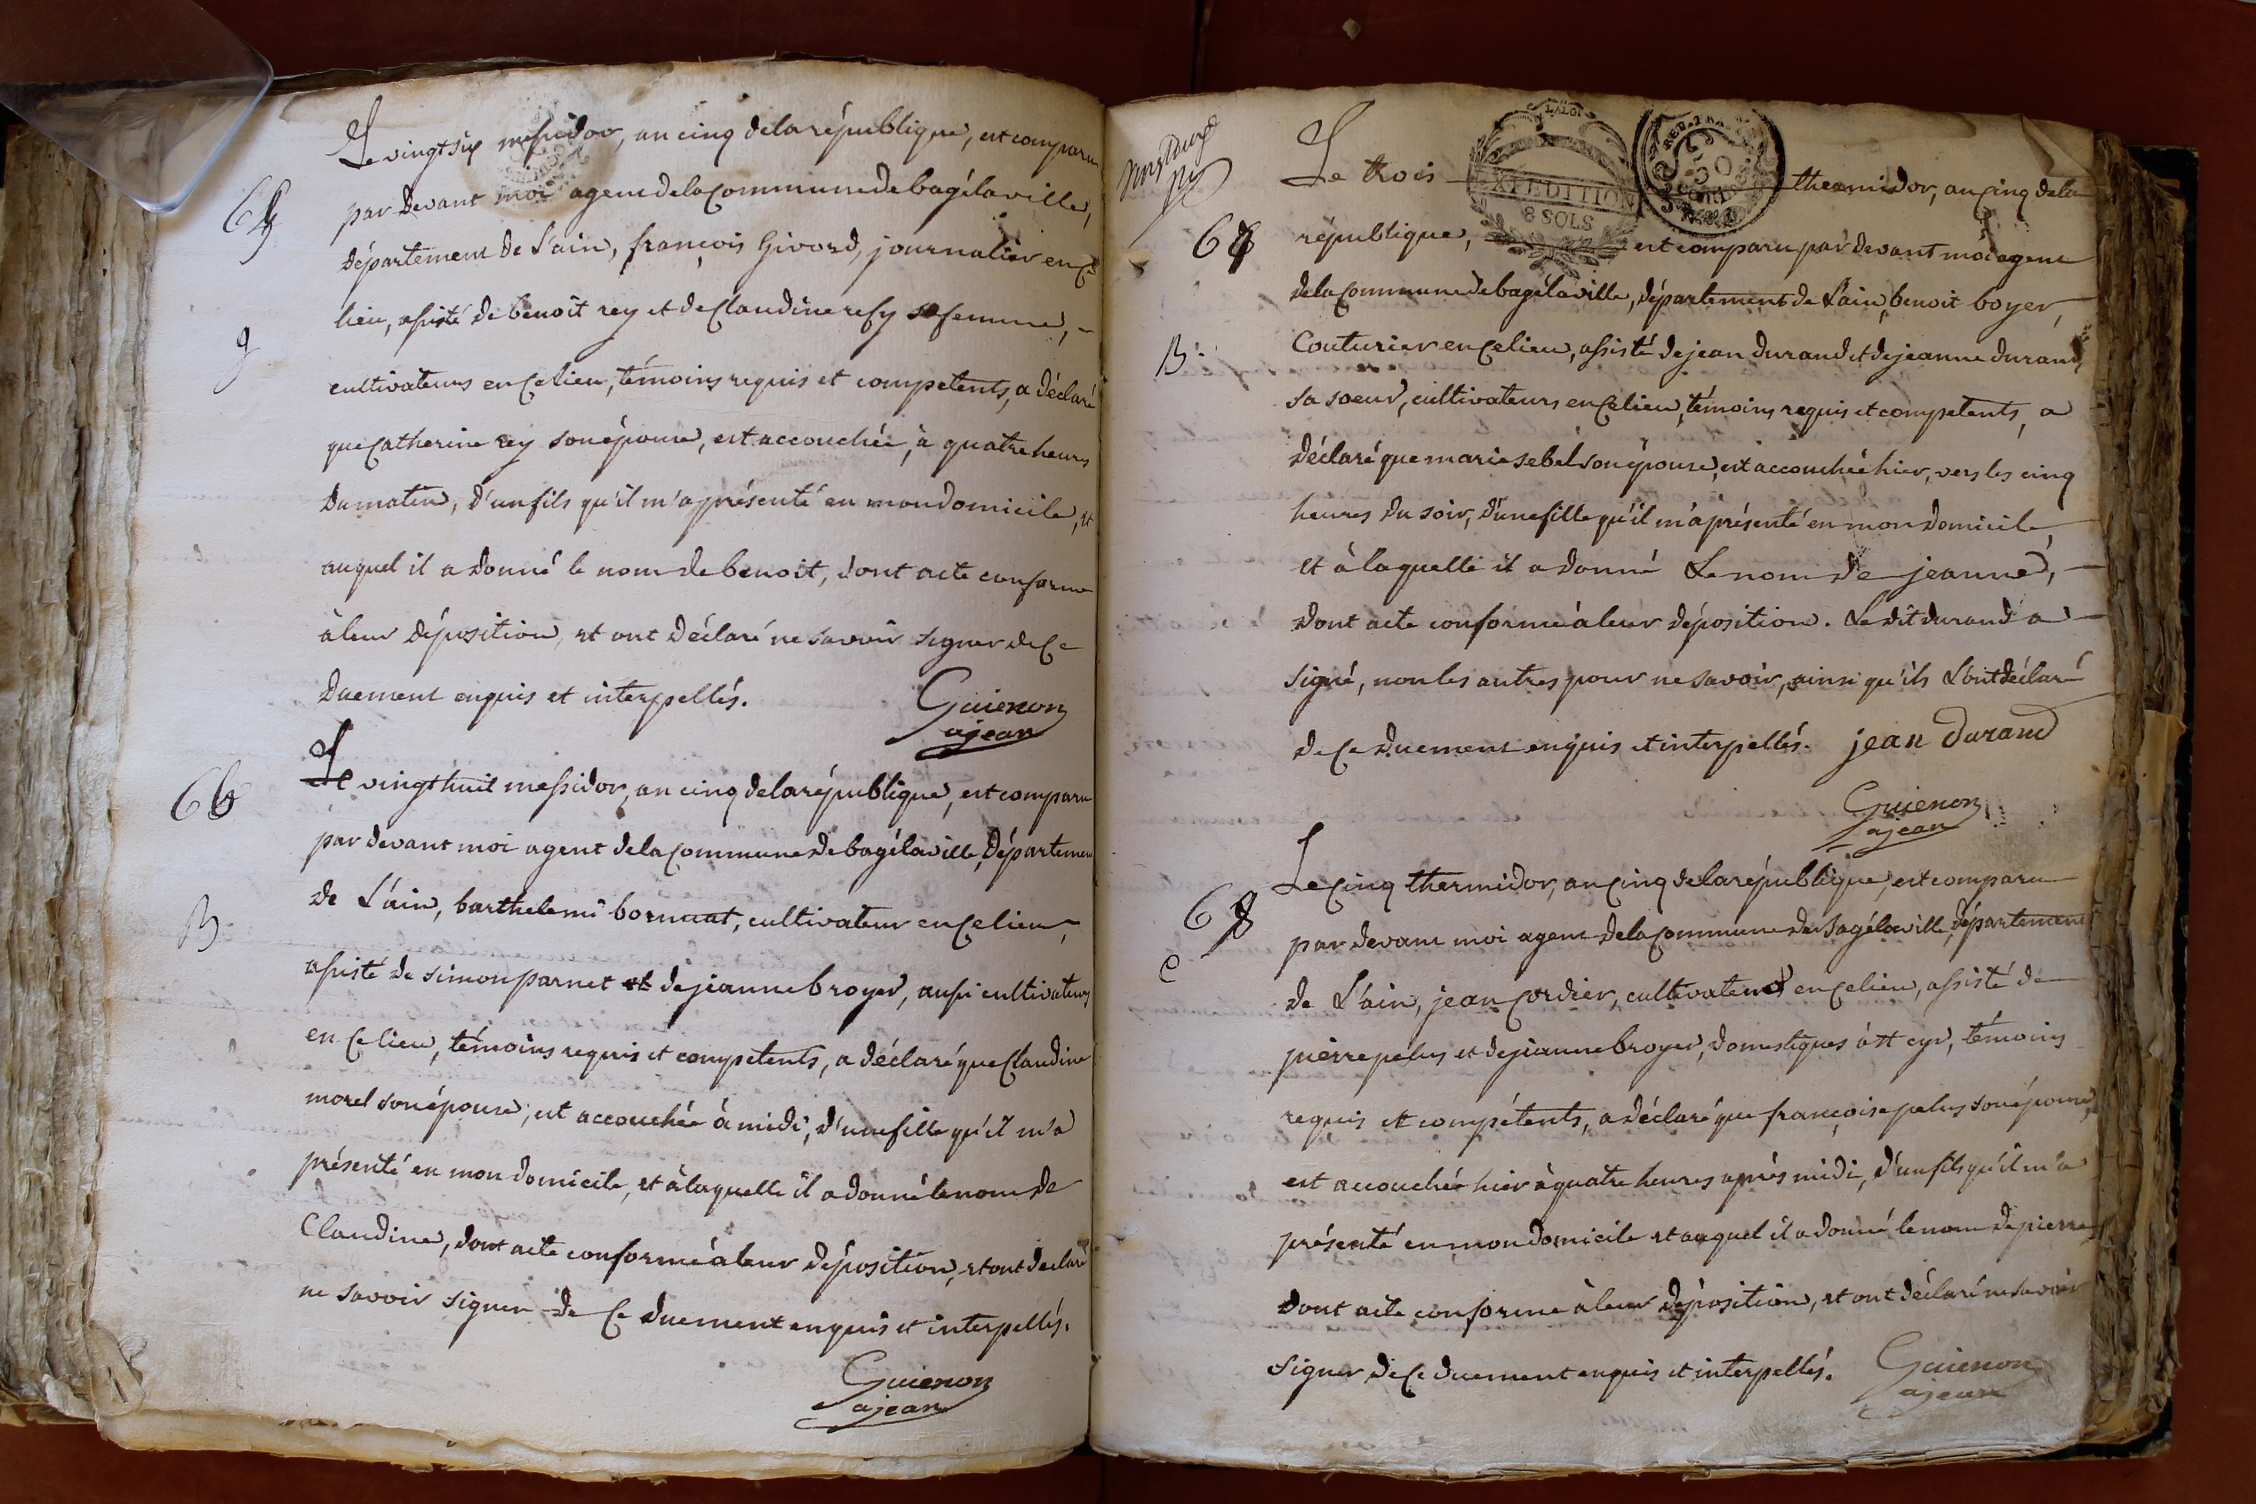 Le vingt six messidor, an cinq de la république, est comparu
par devant moi agent de la commune de bagé la ville,
département de L'ain, françois Givord, journalier en ce
lieu, assisté de benoit rey et de Claudine rey sa femme,
cultivateurs en ce lieu, témoins requis et competents, a déclaré
que Catherine rey son épouse, est accouchée, à quatre heures
du matin, d'un fils qu'il m'a présenté en mon domicile, et
auquel il a donné le nom de benoit, dont acte conforme
à leur déposition, et ont déclaré ne savoir signer de ce
duement enquis et interpellés.
Guienon
ajean
66
Le vingt huit messidor, an cinq de la république, est comparu
par devant moi agent de la commune de bagé la ville, département
B
de L'ain, barthelemi bornuat, cultivateur en ce lieu,
assisté de simon parnet et de jeanne broyer, aussi cultivateurs
en ce lieu, témoins requis et competents, a déclaré que Claudine
morel son épouse, est accouchée à midi, d'une fille qu'il m'a
présenté en mon domicile, et à laquelle il a donné le nom de
Claudine, dont acte conforme à leur déposition, et ont declaré
ne savoir signer de ce duement enquis et interpellés.
Guienon
ajean
LALOI
EXPEDITION
8 SOLS
Le trois thermidor, an cinq de la
république, est comparu par devant moi agent
de la commune de bagé la ville, département de L'ain, benoit boyer,
B
Couturier en ce lieu, assisté de jean durand et de jeanne durand
sa soeur, cultivateurs en ce lieu, témoins requis et competents, a
déclaré que marie sebel son épouse, est accouchée hier, vers les cinq
heures du soir, d'une fille qu'il m'a présenté en mon domicile,
et à laquelle il a donné Le nom de jeanne,
dont acte conforme à leur déposition. Le dit durand a
signé, non les autres pour ne savoir, ainsi qu'ils L'ont déclaré
de ce duement enquis et interpellés. jean durand
Guienon
ajean
Le cinq thermidor, an cinq de la république, est comparu
par devant moi agent de la commune de bagé la ville, département
C
de L'ain, jean cordier, cultivateur en ce lieu, assisté de
pierre pelus et de jeanne broyer, domestiques à st cyr, témoins
requis et compétents, a déclaré que françoise pelus son épouse,
est accouchée hier à quatre heures après midi, d'un fils qu'il m'a
présenté en mon domicile et auquel il a donné le nom de pierre,
dont acte conforme à leur déposition, et ont déclaré ne savoir
signer de ce duement enquis et interpellés.
Guienon
ajean